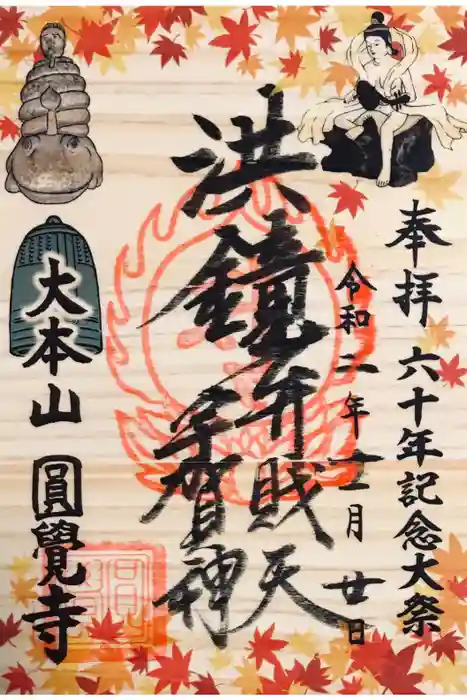 奉拝 六十年記念大祭
令和二年十一月廿日
洪鐘弁財天
宇賀神
大本山 圓覺寺